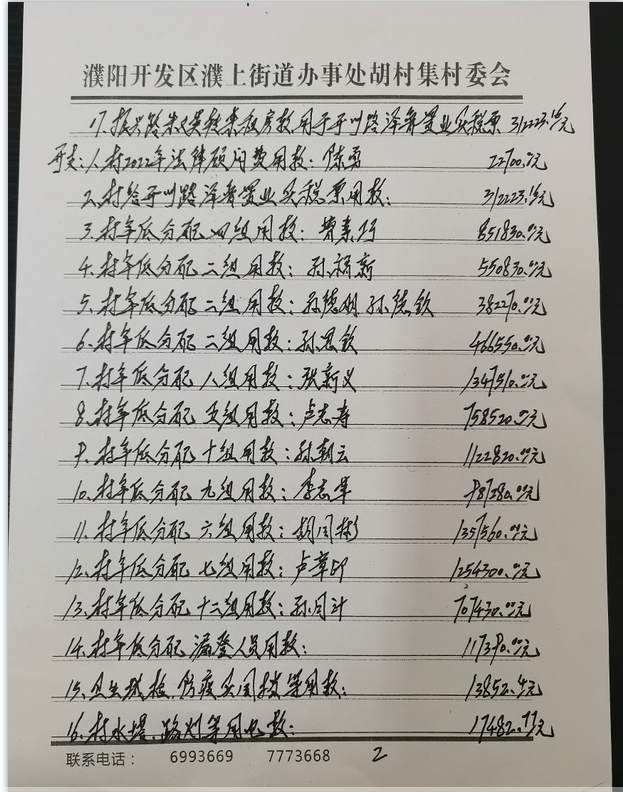 濮阳开发区濮上街道办事处胡村集村委会
17.振兴路 租房款用于开州路泽普置业买税票 312223.16元
开支:1.村2022年法律顾问费用款:陈勇 22700.00元
2.村给开州路泽普置业买税票用款: 312223.16元
3.村年底分配 四组用款: 851830.00元
4.村年底分配 二组用款:孙 新 550830.00元
5.村年底分配 二组用款:孙德明 孙德钦 38270.00元
6.村年底分配 三组用款:孙思钦 466550.00元
7.村年底分配 八组用款:张新义 1347510.00元
8.村年底分配 五组用款:卢志寿 758520.00元
9.村年底分配 十组用款:孙朝云 1122820.00元
10.村年底分配 九组用款:李志军 987280.00元
11.村年底分配 六组用款:胡同彬 1357560.00元
12.村年底分配 七组用款:卢章印 1254300.00元
13.村年底分配 十二组用款:孙同计 707430.00元
14.村年底分配 漏登人员用款: 117390.00元
15.卫生 防疫 等用款: 13852.4元
16.村水塔、路灯等用电款: 17482.77元
联系电话: 6993669 7773668 2